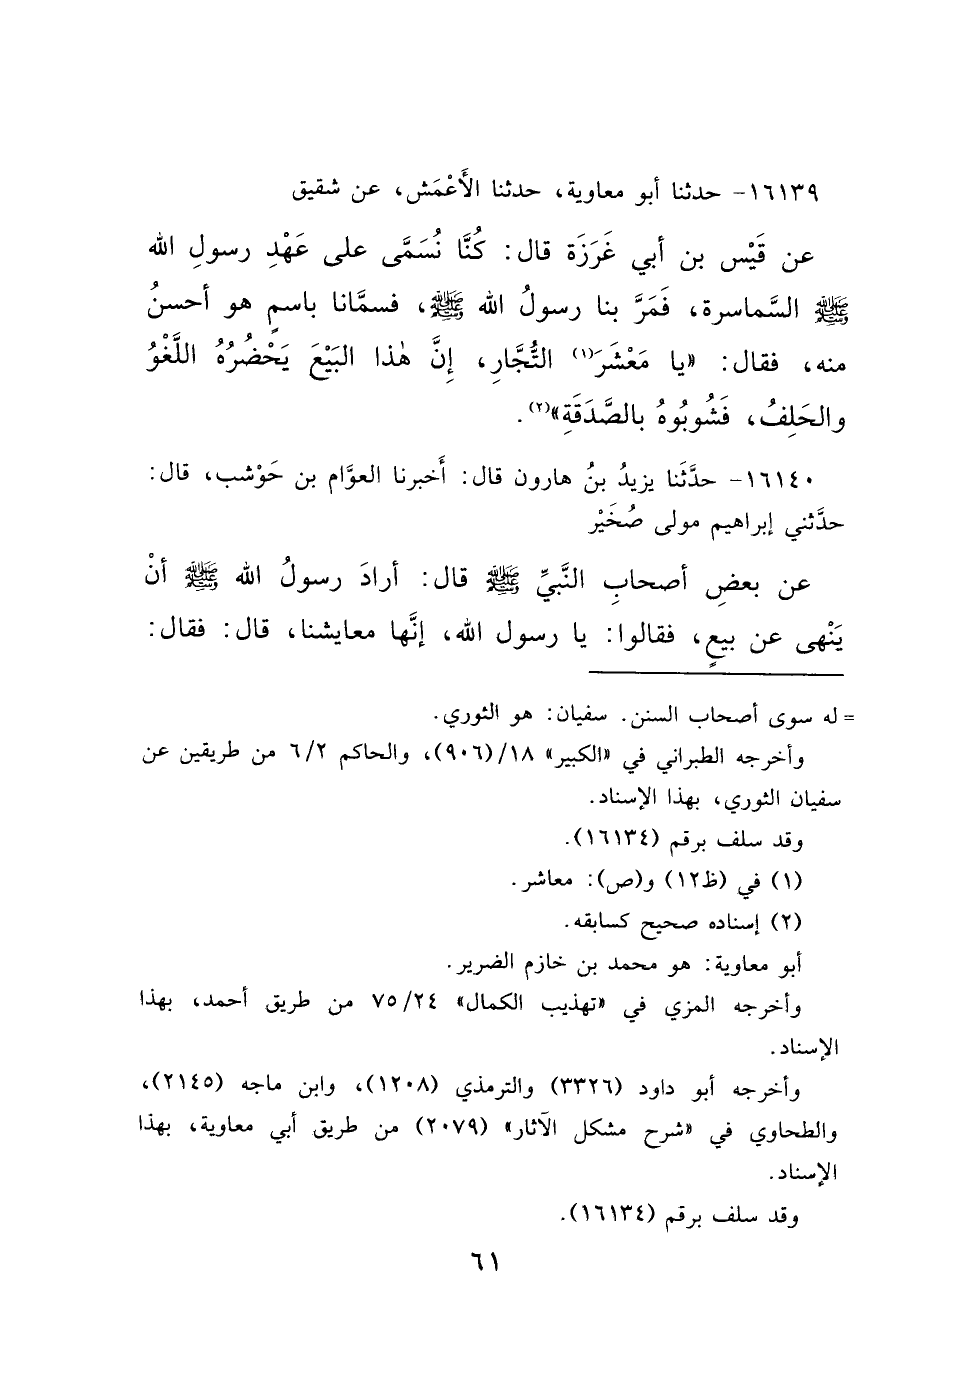 ١٦١٣٩- حدثنا أبو معاوية، حدثنا الأَعْمَش، عن شقيق
عن قَيْس بن أبي غَرَزَة قال: كُنَّا نُسَمَّى على عَهْدِ رسولِ الله
ﷺ السَّماسرة، فَمَرَّ بنا رسولُ الله ﷺ، فسمَّانا باسمٍ هو أحسنُ
منه، فقال: «يا مَعْشَرَ(١) التُّجَّارِ، إِنَّ هٰذا البَيْعَ يَحْضُرُهُ اللَّغْوُ
والحَلِفُ، فَشُوبُوهُ بالصَّدَقَةِ»(٢).
١٦١٤٠- حدَّثَنا يزيدُ بنُ هارون قال: أَخبرنا العوَّام بن حَوْشب، قال:
حدَّثني إبراهيم مولى صُخَيْر
عن بعضِ أصحابِ النَّبيِّ ﷺ قال: أرادَ رسولُ الله ﷺ أنْ
يَنْهى عن بيعٍ، فقالوا: يا رسول الله، إنَّها معايشنا، قال: فقال:
= له سوى أصحاب السنن. سفيان: هو الثوري.
وأخرجه الطبراني في «الكبير» ١٨/(٩٠٦)، والحاكم ٦/٢ من طريقين عن
سفيان الثوري، بهذا الإسناد.
وقد سلف برقم (١٦١٣٤).
(١) في (ظ١٢) و(ص): معاشر.
(٢) إسناده صحيح كسابقه.
أبو معاوية: هو محمد بن خازم الضرير.
وأخرجه المزي في «تهذيب الكمال» ٧٥/٢٤ من طريق أحمد، بهذا
الإسناد.
وأخرجه أبو داود (٣٣٢٦) والترمذي (١٢٠٨)، وابن ماجه (٢١٤٥)،
والطحاوي في «شرح مشكل الآثار» (٢٠٧٩) من طريق أبي معاوية، بهذا
الإسناد.
وقد سلف برقم (١٦١٣٤).
٦١